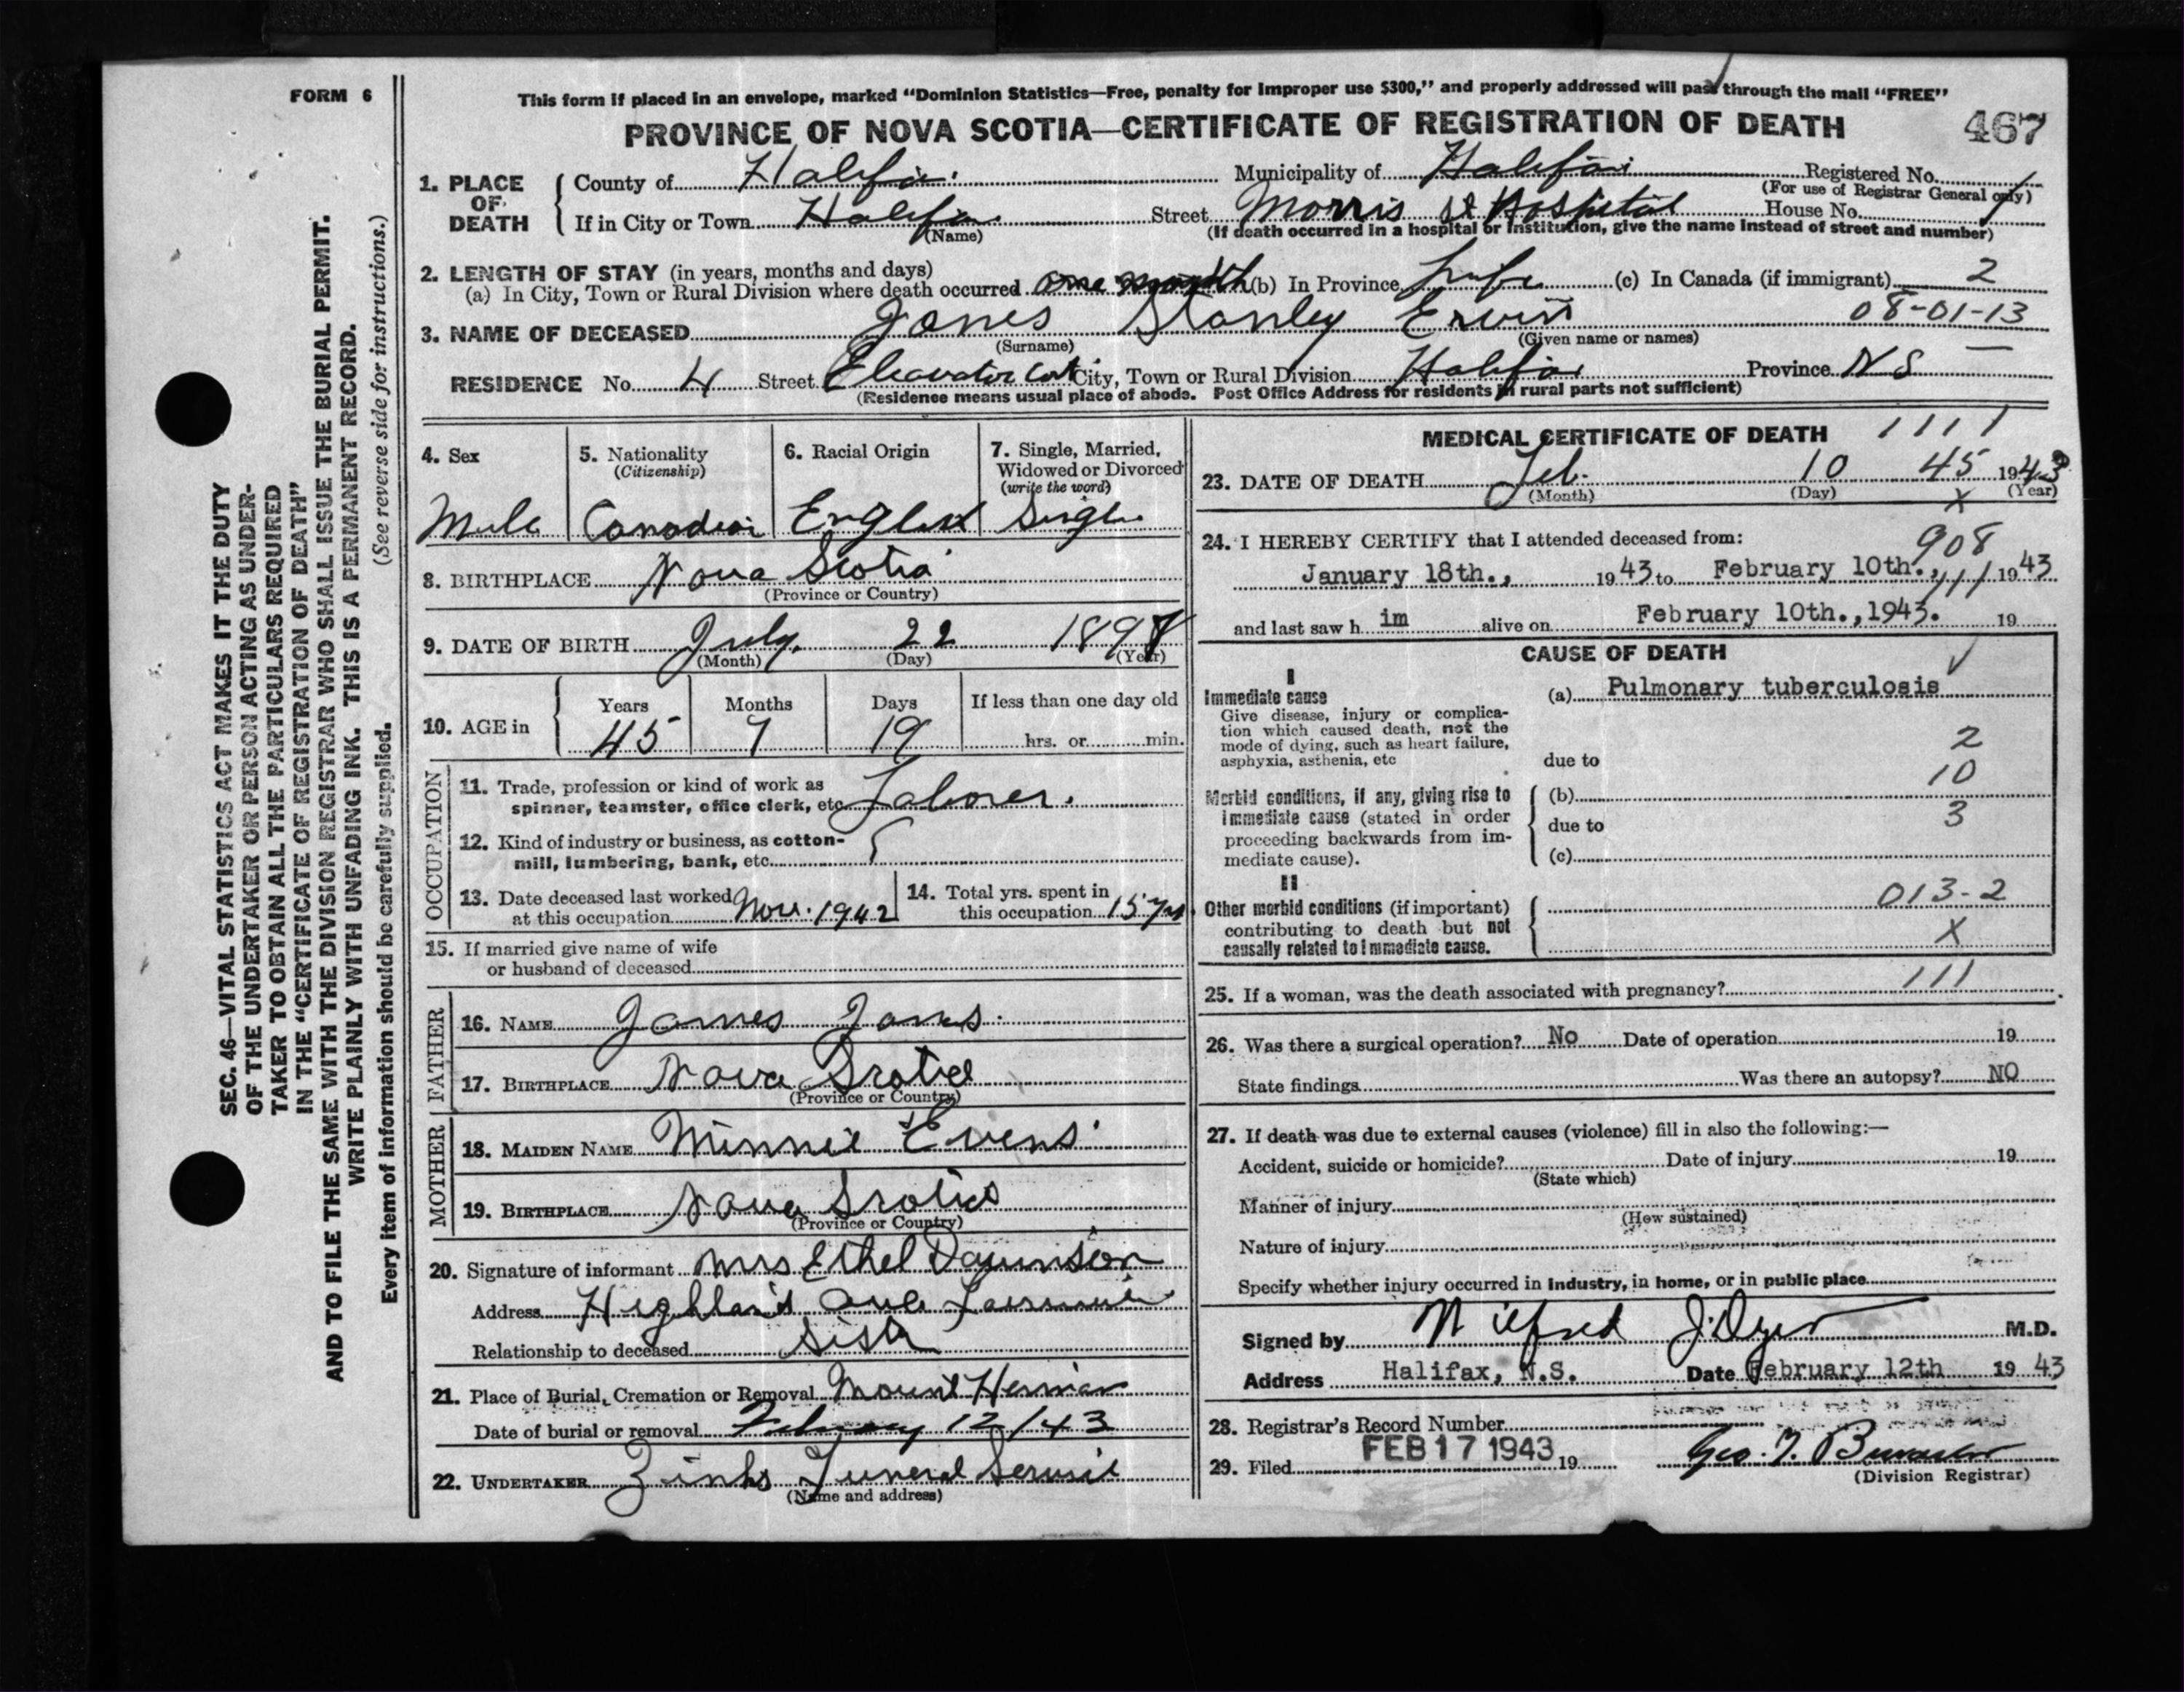 FORM 6
This form if placed in an envelope, marked "Dominion Statistics—Free, penalty for improper use $300," and properly addressed will pass through the mail "FREE"
PROVINCE OF NOVA SCOTIA—CERTIFICATE OF REGISTRATION OF DEATH
467
1. PLACE OF DEATH
County of Halifax. Municipality of Halifax Registered No.
(For use of Registrar General only)
If in City or Town Halifax Street Morris St Hospital House No.
(Name) (If death occurred in a hospital or institution, give the name instead of street and number)
2. LENGTH OF STAY (in years, months and days)
(a) In City, Town or Rural Division where death occurred one month (b) In Province Life (c) In Canada (if immigrant) 2
08-01-13
3. NAME OF DECEASED Jones Stanley Ervin
(Surname) (Given name or names)
RESIDENCE No. 4 Street Elevator Cort City, Town or Rural Division Halifax Province N S
(Residence means usual place of abode. Post Office Address for residents in rural parts not sufficient)
4. Sex 5. Nationality 6. Racial Origin 7. Single, Married,
(Citizenship) Widowed or Divorced
(write the word)
Male Canadian English Single
8. BIRTHPLACE Nova Scotia
(Province or Country)
9. DATE OF BIRTH July. 22 1897
(Month) (Day) (Year)
10. AGE in Years Months Days If less than one day old
45 7 19 hrs. or min.
OCCUPATION
11. Trade, profession or kind of work as
spinner, teamster, office clerk, etc Laborer.
12. Kind of industry or business, as cotton-
mill, lumbering, bank, etc.
13. Date deceased last worked
at this occupation Nov. 1942
14. Total yrs. spent in
this occupation 15 yrs.
15. If married give name of wife
or husband of deceased
FATHER
16. NAME James Jones.
17. BIRTHPLACE Nova Scotia
(Province or Country)
MOTHER
18. MAIDEN NAME Minnie Evens
19. BIRTHPLACE Nova Scotia
(Province or Country)
20. Signature of informant Mrs Ethel
Address
Relationship to deceased Sister
21. Place of Burial, Cremation or Removal Mount Herman
Date of burial or removal February 12/43
22. UNDERTAKER Zinks Funeral Service
(Name and address)
MEDICAL CERTIFICATE OF DEATH 1111
23. DATE OF DEATH Feb. 10 45 1943
(Month) (Day) X (Year)
24. I HEREBY CERTIFY that I attended deceased from:
908
January 18th., 1943 to February 10th., 111 1943
and last saw h im alive on February 10th.,1943. 19
CAUSE OF DEATH
I
Immediate cause
Give disease, injury or complica-
tion which caused death, not the
mode of dying, such as heart failure,
asphyxia, asthenia, etc
(a) Pulmonary tuberculosis
2
due to
10
Morbid conditions, if any, giving rise to
immediate cause (stated in order
proceeding backwards from im-
mediate cause).
(b)
3
due to
(c)
II
Other morbid conditions (if important)
contributing to death but not
causally related to immediate cause.
013-2
X
25. If a woman, was the death associated with pregnancy? 111
26. Was there a surgical operation? No Date of operation 19
State findings Was there an autopsy? NO
27. If death was due to external causes (violence) fill in also the following:—
Accident, suicide or homicide? Date of injury 19
(State which)
Manner of injury
(How sustained)
Nature of injury
Specify whether injury occurred in industry, in home, or in public place
Signed by Wilfred J. Dyer M.D.
Address Halifax, N.S. Date February 12th 19 43
28. Registrar's Record Number
29. Filed FEB 17 1943 19 Geo. T.
(Division Registrar)
SEC. 46—VITAL STATISTICS ACT MAKES IT THE DUTY
OF THE UNDERTAKER OR PERSON ACTING AS UNDER-
TAKER TO OBTAIN ALL THE PARTICULARS REQUIRED
IN THE "CERTIFICATE OF REGISTRATION OF DEATH"
AND TO FILE THE SAME WITH THE DIVISION REGISTRAR WHO SHALL ISSUE THE BURIAL PERMIT.
WRITE PLAINLY WITH UNFADING INK. THIS IS A PERMANENT RECORD.
Every item of information should be carefully supplied. (See reverse side for instructions.)